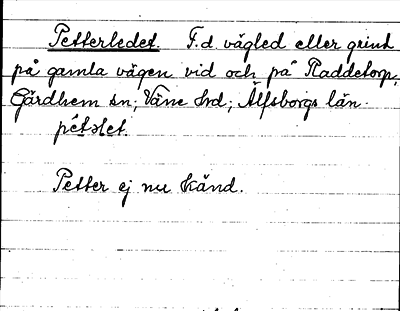 Petterledet. F.d. vägled eller grind
på gamla vägen vid och på Raddetorp,
Gärdhem sn; Väne hd; Älfsborgs län.
pétəlet.
Petter ej nu känd.